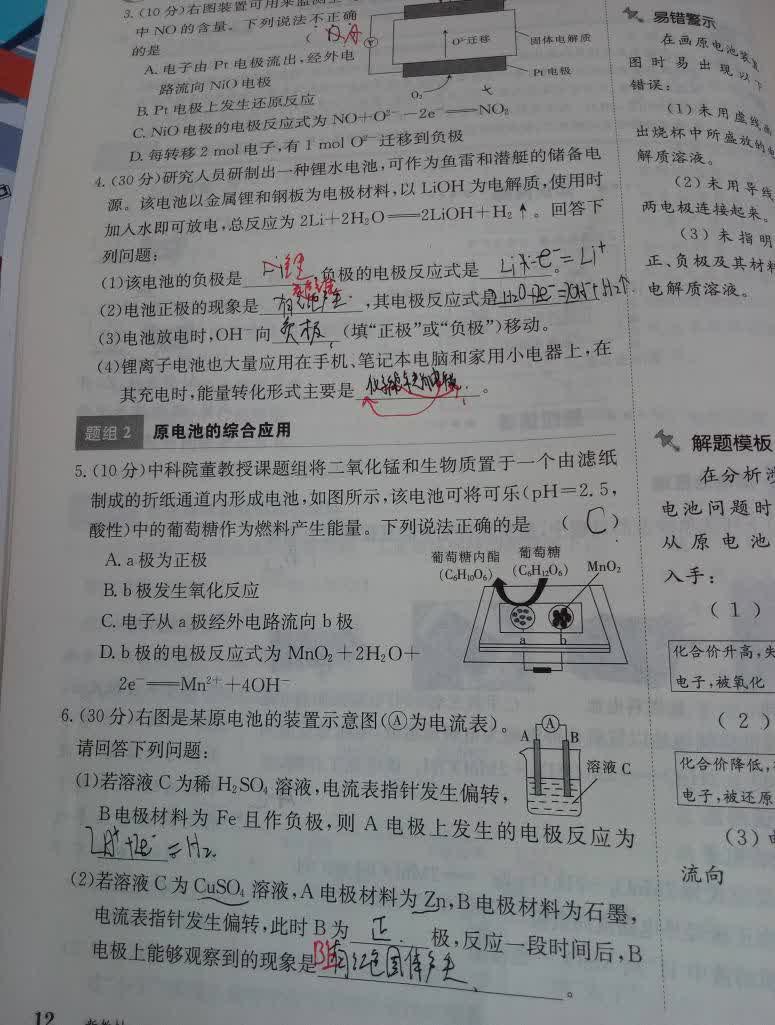 3.(10分)右图装置可用来监测
中NO的含量。下列说法不正确
的是
A.电子由Pt电极流出,经外电
路流向NiO电极
B.Pt电极上发生还原反应
C.NiO电极的电极反应式为NO+O²⁻-2e⁻══NO₂
D.每转移2 mol电子,有1 mol O²⁻迁移到负极
O²⁻迁移
固体电解质
Pt电极
O₂
4.(30分)研究人员研制出一种锂水电池,可作为鱼雷和潜艇的储备电
源。该电池以金属锂和钢板为电极材料,以LiOH为电解质,使用时
加入水即可放电,总反应为2Li+2H₂O══2LiOH+H₂↑。回答下
列问题:
(1)该电池的负极是 锂 ,负极的电极反应式是 Li-e⁻=Li⁺ 。
(2)电池正极的现象是 ,其电极反应式是
(3)电池放电时,OH⁻向 负极 (填“正极”或“负极”)移动。
(4)锂离子电池也大量应用在手机、笔记本电脑和家用小电器上,在
其充电时,能量转化形式主要是 。
题组2 原电池的综合应用
5.(10分)中科院董教授课题组将二氧化锰和生物质置于一个由滤纸
制成的折纸通道内形成电池,如图所示,该电池可将可乐(pH=2.5,
酸性)中的葡萄糖作为燃料产生能量。下列说法正确的是 ( C )
A.a极为正极
B.b极发生氧化反应
C.电子从a极经外电路流向b极
D.b极的电极反应式为MnO₂+2H₂O+
2e⁻══Mn²⁺+4OH⁻
葡萄糖内酯 葡萄糖
(C₆H₁₀O₆) (C₆H₁₂O₆) MnO₂
a b
6.(30分)右图是某原电池的装置示意图(Ⓐ为电流表)。
请回答下列问题:
(1)若溶液C为稀H₂SO₄溶液,电流表指针发生偏转,
B电极材料为Fe且作负极,则A电极上发生的电极反应为
2H⁺+2e⁻=H₂ 。
A Ⓐ B
溶液C
(2)若溶液C为CuSO₄溶液,A电极材料为Zn,B电极材料为石墨,
电流表指针发生偏转,此时B为 正 极,反应一段时间后,B
电极上能够观察到的现象是 有红色固体产生 。
12
易错警示
在画原电池装置
图时易出现以下
错误:
(1)未用虚线画
出烧杯中所盛放的电
解质溶液。
(2)未用导线
两电极连接起来。
(3)未指明
正、负极及其材料
电解质溶液。
解题模板
在分析
电池问题时
从原电池
入手:
(1)
化合价升高,失
电子,被氧化
(2)
化合价降低,
电子,被还原
(3)
流向